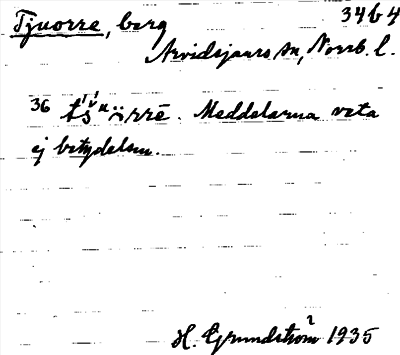 Tjuorre, berg 34b4
Arvidsjaurs sn, Norrb. l.
36 Meddelarna veta
ej betydelsen.
H. Grundström 1935